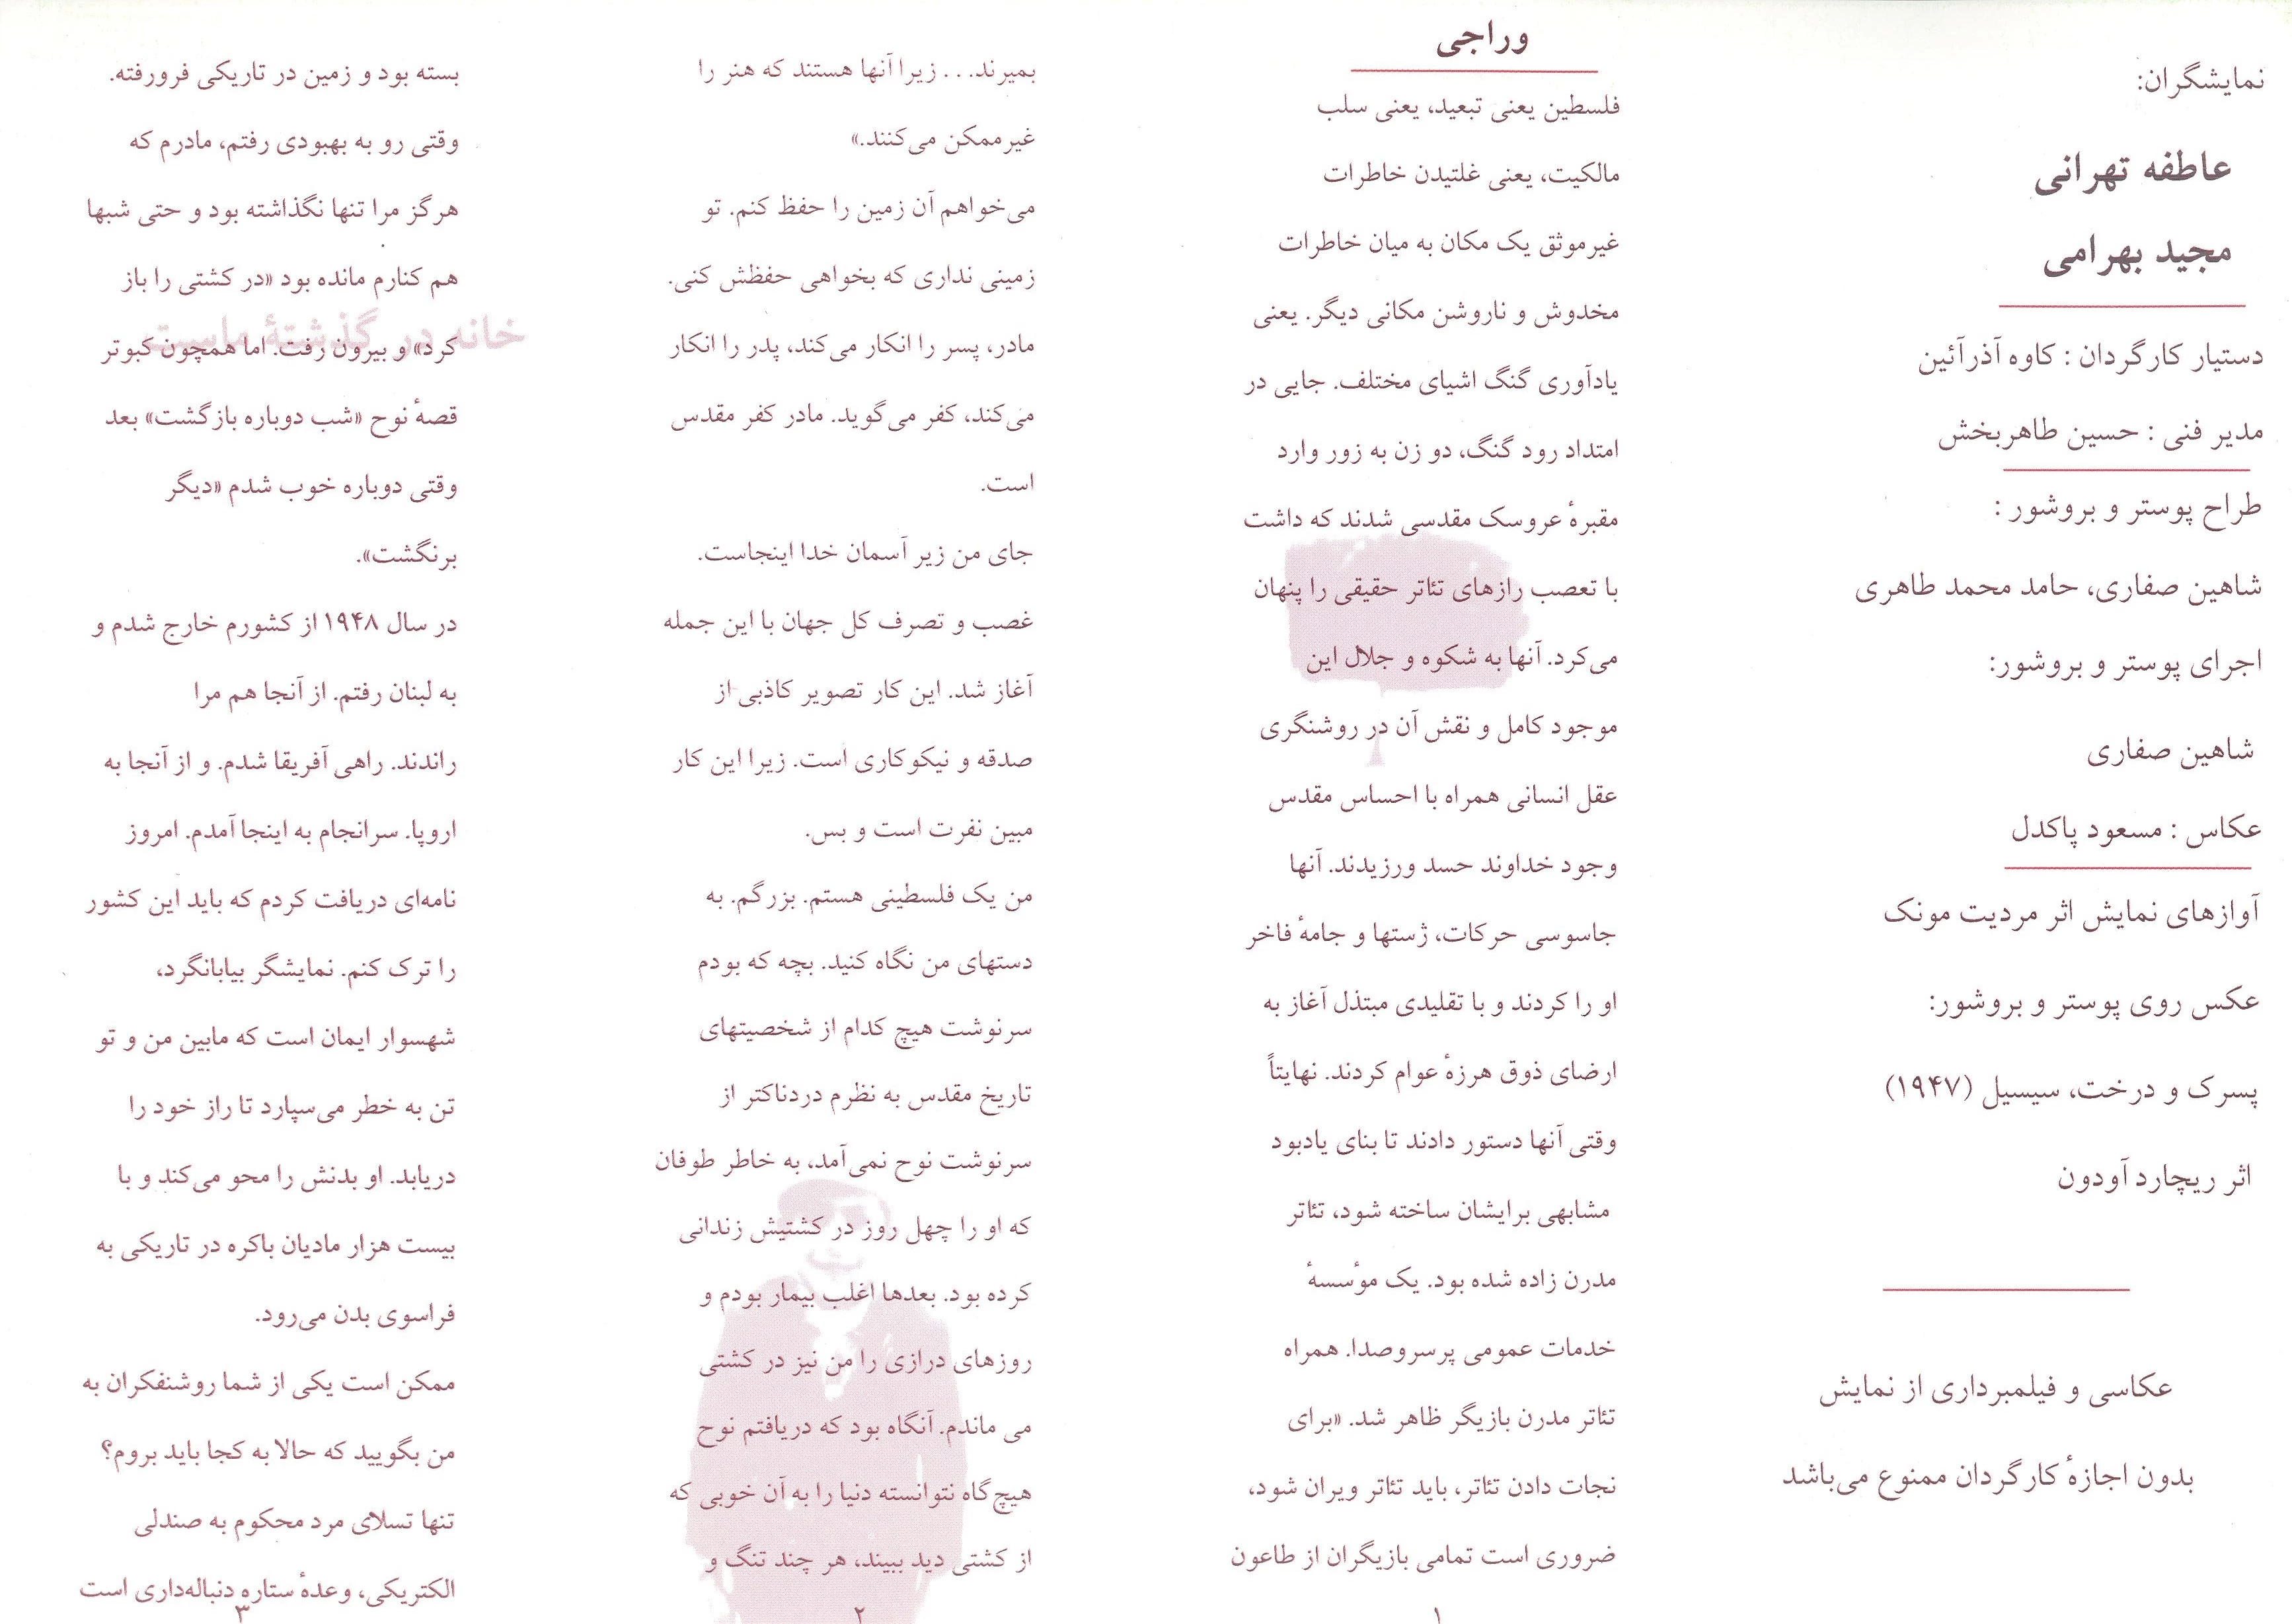 نمایشگران:
عاطفه تهرانی
مجید بهرامی
دستیار کارگردان : کاوه آذرآئین
مدیر فنی : حسین طاهربخش
طراح پوستر و بروشور :
شاهین صفاری، حامد محمد طاهری
اجرای پوستر و بروشور:
شاهین صفاری
عکاس : مسعود پاکدل
آوازهای نمایش اثر مردیت مونک
عکس روی پوستر و بروشور:
پسرک و درخت، سیسیل (۱۹۴۷)
اثر ریچارد آودون
عکاسی و فیلمبرداری از نمایش
بدون اجازهٔ کارگردان ممنوع می‌باشد
وراجی
فلسطین یعنی تبعید، یعنی سلب
مالکیت، یعنی غلتیدن خاطرات
غیرموثق یک مکان به میان خاطرات
مخدوش و ناروشن مکانی دیگر. یعنی
یادآوری گنگ اشیای مختلف. جایی در
امتداد رود گنگ، دو زن به زور وارد
مقبرهٔ عروسک مقدسی شدند که داشت
با تعصب رازهای تئاتر حقیقی را پنهان
می‌کرد. آنها به شکوه و جلال این
موجود کامل و نقش آن در روشنگری
عقل انسانی همراه با احساس مقدس
وجود خداوند حسد ورزیدند. آنها
جاسوسی حرکات، ژستها و جامهٔ فاخر
او را کردند و با تقلیدی مبتذل آغاز به
ارضای ذوق هرزهٔ عوام کردند. نهایتاً
وقتی آنها دستور دادند تا بنای یادبود
مشابهی برایشان ساخته شود، تئاتر
مدرن زاده شده بود. یک مؤسسهٔ
خدمات عمومی پرسروصدا. همراه
تئاتر مدرن بازیگر ظاهر شد. «برای
نجات دادن تئاتر، باید تئاتر ویران شود،
ضروری است تمامی بازیگران از طاعون
۱
بمیرند... زیرا آنها هستند که هنر را
غیرممکن می‌کنند.»
می‌خواهم آن زمین را حفظ کنم. تو
زمینی نداری که بخواهی حفظش کنی.
مادر، پسر را انکار می‌کند، پدر را انکار
می‌کند، کفر می‌گوید. مادر کفر مقدس
است.
جای من زیر آسمان خدا اینجاست.
غصب و تصرف کل جهان با این جمله
آغاز شد. این کار تصویر کاذبی از
صدقه و نیکوکاری است. زیرا این کار
مبین نفرت است و بس.
من یک فلسطینی هستم. بزرگم. به
دستهای من نگاه کنید. بچه که بودم
سرنوشت هیچ کدام از شخصیتهای
تاریخ مقدس به نظرم دردناکتر از
سرنوشت نوح نمی‌آمد، به خاطر طوفان
که او را چهل روز در کشتیش زندانی
کرده بود. بعدها اغلب بیمار بودم و
روزهای درازی را من نیز در کشتی
می ماندم. آنگاه بود که دریافتم نوح
هیچ‌گاه نتوانسته دنیا را به آن خوبی که
از کشتی دید ببیند، هر چند تنگ و
۲
بسته بود و زمین در تاریکی فرورفته.
وقتی رو به بهبودی رفتم، مادرم که
هرگز مرا تنها نگذاشته بود و حتی شبها
هم کنارم مانده بود «در کشتی را باز
خانه در گذشتهٔ ماست
کرد» و بیرون رفت. اما همچون کبوتر
قصهٔ نوح «شب دوباره بازگشت» بعد
وقتی دوباره خوب شدم «دیگر
برنگشت».
در سال ۱۹۴۸ از کشورم خارج شدم و
به لبنان رفتم. از آنجا هم مرا
راندند. راهی آفریقا شدم. و از آنجا به
اروپا. سرانجام به اینجا آمدم. امروز
نامه‌ای دریافت کردم که باید این کشور
را ترک کنم. نمایشگر بیابانگرد،
شهسوار ایمان است که مابین من و تو
تن به خطر می‌سپارد تا راز خود را
دریابد. او بدنش را محو می‌کند و با
بیست هزار مادیان باکره در تاریکی به
فراسوی بدن می‌رود.
ممکن است یکی از شما روشنفکران به
من بگویید که حالا به کجا باید بروم؟
تنها تسلای مرد محکوم به صندلی
الکتریکی، وعدهٔ ستاره دنباله‌داری است
۳